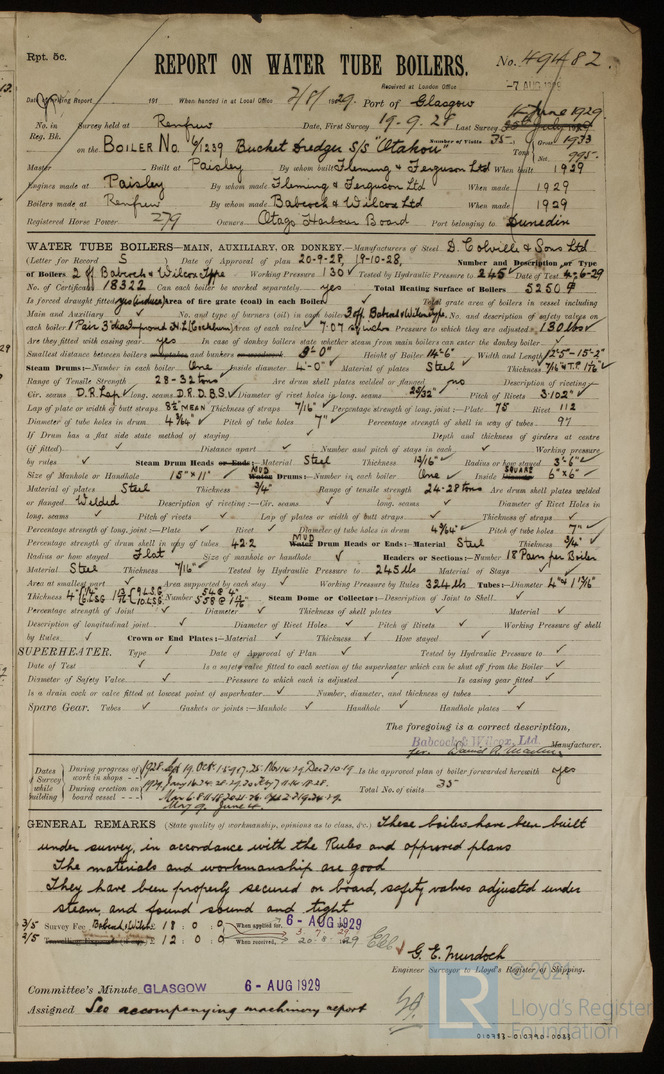 Rpt. 5c.
REPORT ON WATER TUBE BOILERS.
No. 49482.
Received at London Office -7 AUG 1929
Date of writing Report 191 When handed in at Local Office 2/8/1929. Port of Glasgow
No. in Survey held at Renfrew Date, First Survey 19-9-28 Last Survey 4 June 1929
Reg. Bk. Number of Visits 35
on the BOILER No. 6/1239 Bucket Dredger S/S "Otakou" Tons Gross 1933 Net 995
Master Built at Paisley By whom built Fleming & Ferguson Ltd When built 1929
Engines made at Paisley By whom made Fleming & Ferguson Ltd When made 1929
Boilers made at Renfrew By whom made Babcock & Wilcox Ltd When made 1929
Registered Horse Power 279 Owners Otago Harbour Board Port belonging to Dunedin
WATER TUBE BOILERS—MAIN, AUXILIARY, OR DONKEY.—Manufacturers of Steel D. Colville & Sons Ltd
(Letter for Record S) Date of Approval of plan 20-9-28, 19-10-28, Number and Description or Type
of Boilers 2 off Babcock & Wilcox Type Working Pressure 130 Tested by Hydraulic Pressure to 245 Date of Test 4-6-29
No. of Certificate 18322 Can each boiler be worked separately yes Total Heating Surface of Boilers 5250
Is forced draught fitted yes (induced) Area of fire grate (coal) in each Boiler Total grate area of boilers in vessel including
Main and Auxiliary No. and type of burners (oil) in each boiler 3 off Babcock & Wilcox type. No. and description of safety valves on
each boiler 1 Pair 3" H.L. (Cockburn) Area of each valve 7.07 sq inches Pressure to which they are adjusted 130 lbs
Are they fitted with easing gear yes In case of donkey boilers state whether steam from main boilers can enter the donkey boiler
Smallest distance between boilers and bunkers 9'-0" Height of Boiler 14'-6" Width and Length 12'-5" - 15'-2"
Steam Drums:—Number in each boiler One Inside diameter 4'-0" Material of plates Steel Thickness 7/16" & T.P. 1 1/2"
Range of Tensile Strength 28-32 tons Are drum shell plates welded or flanged no Description of riveting:—
Cir. seams D.R. Lap long. seams D.R.D.B.S. Diameter of rivet holes in long. seams 29/32" Pitch of Rivets 3.102"
Lap of plate or width of butt straps 8 1/2" MEAN Thickness of straps 7/16" Percentage strength of long. joint:—Plate 75 Rivet 112
Diameter of tube holes in drum 4 3/64" Pitch of tube holes 7" Percentage strength of shell in way of tubes 97
If Drum has a flat side state method of staying Depth and thickness of girders at centre
(if fitted) Distance apart Number and pitch of stays in each Working pressure
by rules Steam Drum Heads or Ends:—Material Steel Thickness 13/16" Radius or how stayed 3'-6"
Size of Manhole or Handhole 15" x 11" MUD Drums:—Number in each boiler One Inside SQUARE 6" x 6"
Material of plates Steel Thickness 3/4" Range of tensile strength 24-28 tons Are drum shell plates welded
or flanged Welded Description of riveting:—Cir. seams long. seams Diameter of Rivet Holes in
long. seams Pitch of rivets Lap of plates or width of butt straps Thickness of straps
Percentage strength of long. joint:—Plate Rivet Diameter of tube holes in drum 4 3/64" Pitch of tube holes 7"
Percentage strength of drum shell in way of tubes 42.2 MUD Drum Heads or Ends:—Material Steel Thickness 3/4"
Radius or how stayed Flat Size of manhole or handhole Headers or Sections:—Number 18 Pairs per Boiler
Material Steel Thickness 7/16" Tested by Hydraulic Pressure to 245 lbs Material of Stays
Area at smallest part Area supported by each stay Working Pressure by Rules 324 lbs Tubes:—Diameter 4" & 1 13/16"
Thickness Number 54 @ 4" 558 @ 1 13/16" Steam Dome or Collector:—Description of Joint to Shell
Percentage strength of Joint Diameter Thickness of shell plates Material
Description of longitudinal joint Diameter of Rivet Holes Pitch of Rivets Working Pressure of shell
by Rules Crown or End Plates:—Material Thickness How stayed
SUPERHEATER. Type Date of Approval of Plan Tested by Hydraulic Pressure to
Date of Test Is a safety valve fitted to each section of the superheater which can be shut off from the Boiler
Diameter of Safety Valve Pressure to which each is adjusted Is easing gear fitted
Is a drain cock or valve fitted at lowest point of superheater Number, diameter, and thickness of tubes
Spare Gear. Tubes Gaskets or joints:—Manhole Handhole Handhole plates
The foregoing is a correct description,
Babcock & Wilcox, Ltd. Manufacturer.
per. David R.
Dates of Survey while building
During progress of work in shops - - 1928. Sep 19. Oct. Nov 14. 29 Dec 3. 10. 19
Is the approved plan of boiler forwarded herewith yes
During erection on board vessel - - - 1929,
May 9. June 4.
Total No. of visits 35
GENERAL REMARKS (State quality of workmanship, opinions as to class, &c.) These boilers have been built
under survey, in accordance with the Rules and approved plans
The materials and workmanship are good
They have been properly secured on board, safety valves adjusted under
steam, and found sound and tight
3/5 Survey Fee Babcock & Wilcox £ 18 : 0 : 0 When applied for, 6 - AUG 1929
2/5 £ 12 : 0 : 0 When received, 20-8-1929
G. E. Murdoch
Engineer Surveyor to Lloyd's Register of Shipping.
Committee's Minute GLASGOW 6 - AUG 1929
Assigned See accompanying machinery report
© 2021
LR
Lloyd's Register
Foundation
010783-010790-0083